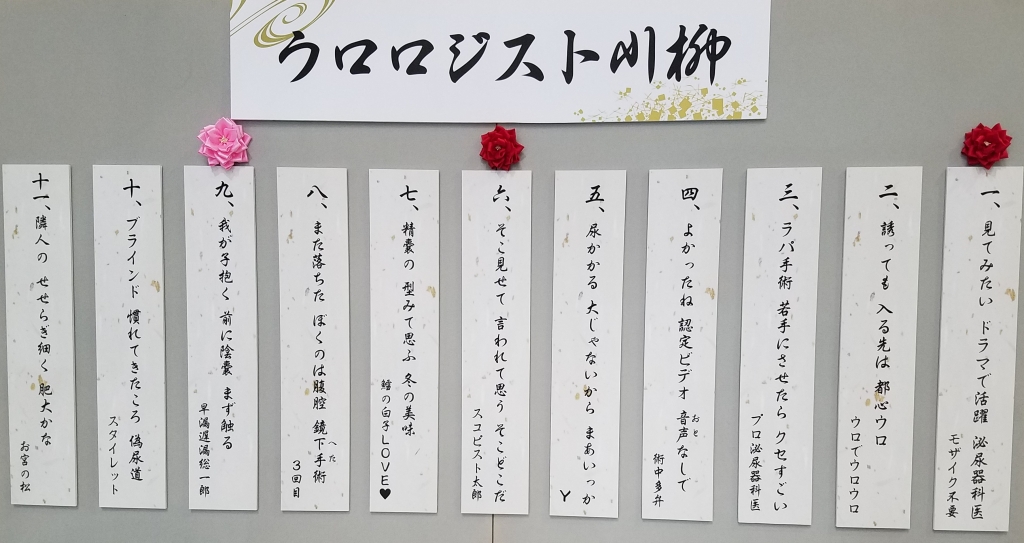 ウロロジスト川柳
一、見てみたい ドラマで活躍 泌尿器科医
モザイク不要
二、誘っても 入る先は 都心ウロ
ウロでウロウロ
三、ラパ手術 若手にさせたら クセすごい
プロ泌尿器科医
四、よかったね 認定ビデオ 音声なしで
おと
術中多弁
五、尿かかる 大じゃないから まあいっか
Y
六、そこ見せて 言われて思う そこどこだ
スコピスト太郎
七、精嚢の 型みて思ふ 冬の美味
鱈の白子LOVE♥
八、また落ちた ぼくのは腹腔 鏡下手術
へた
3回目
九、我が子抱く 前に陰嚢 まず触る
早漏遅漏総一郎
十、ブラインド 慣れてきたころ 偽尿道
スタイレット
十一、隣人の せせらぎ細く 肥大かな
お宮の松